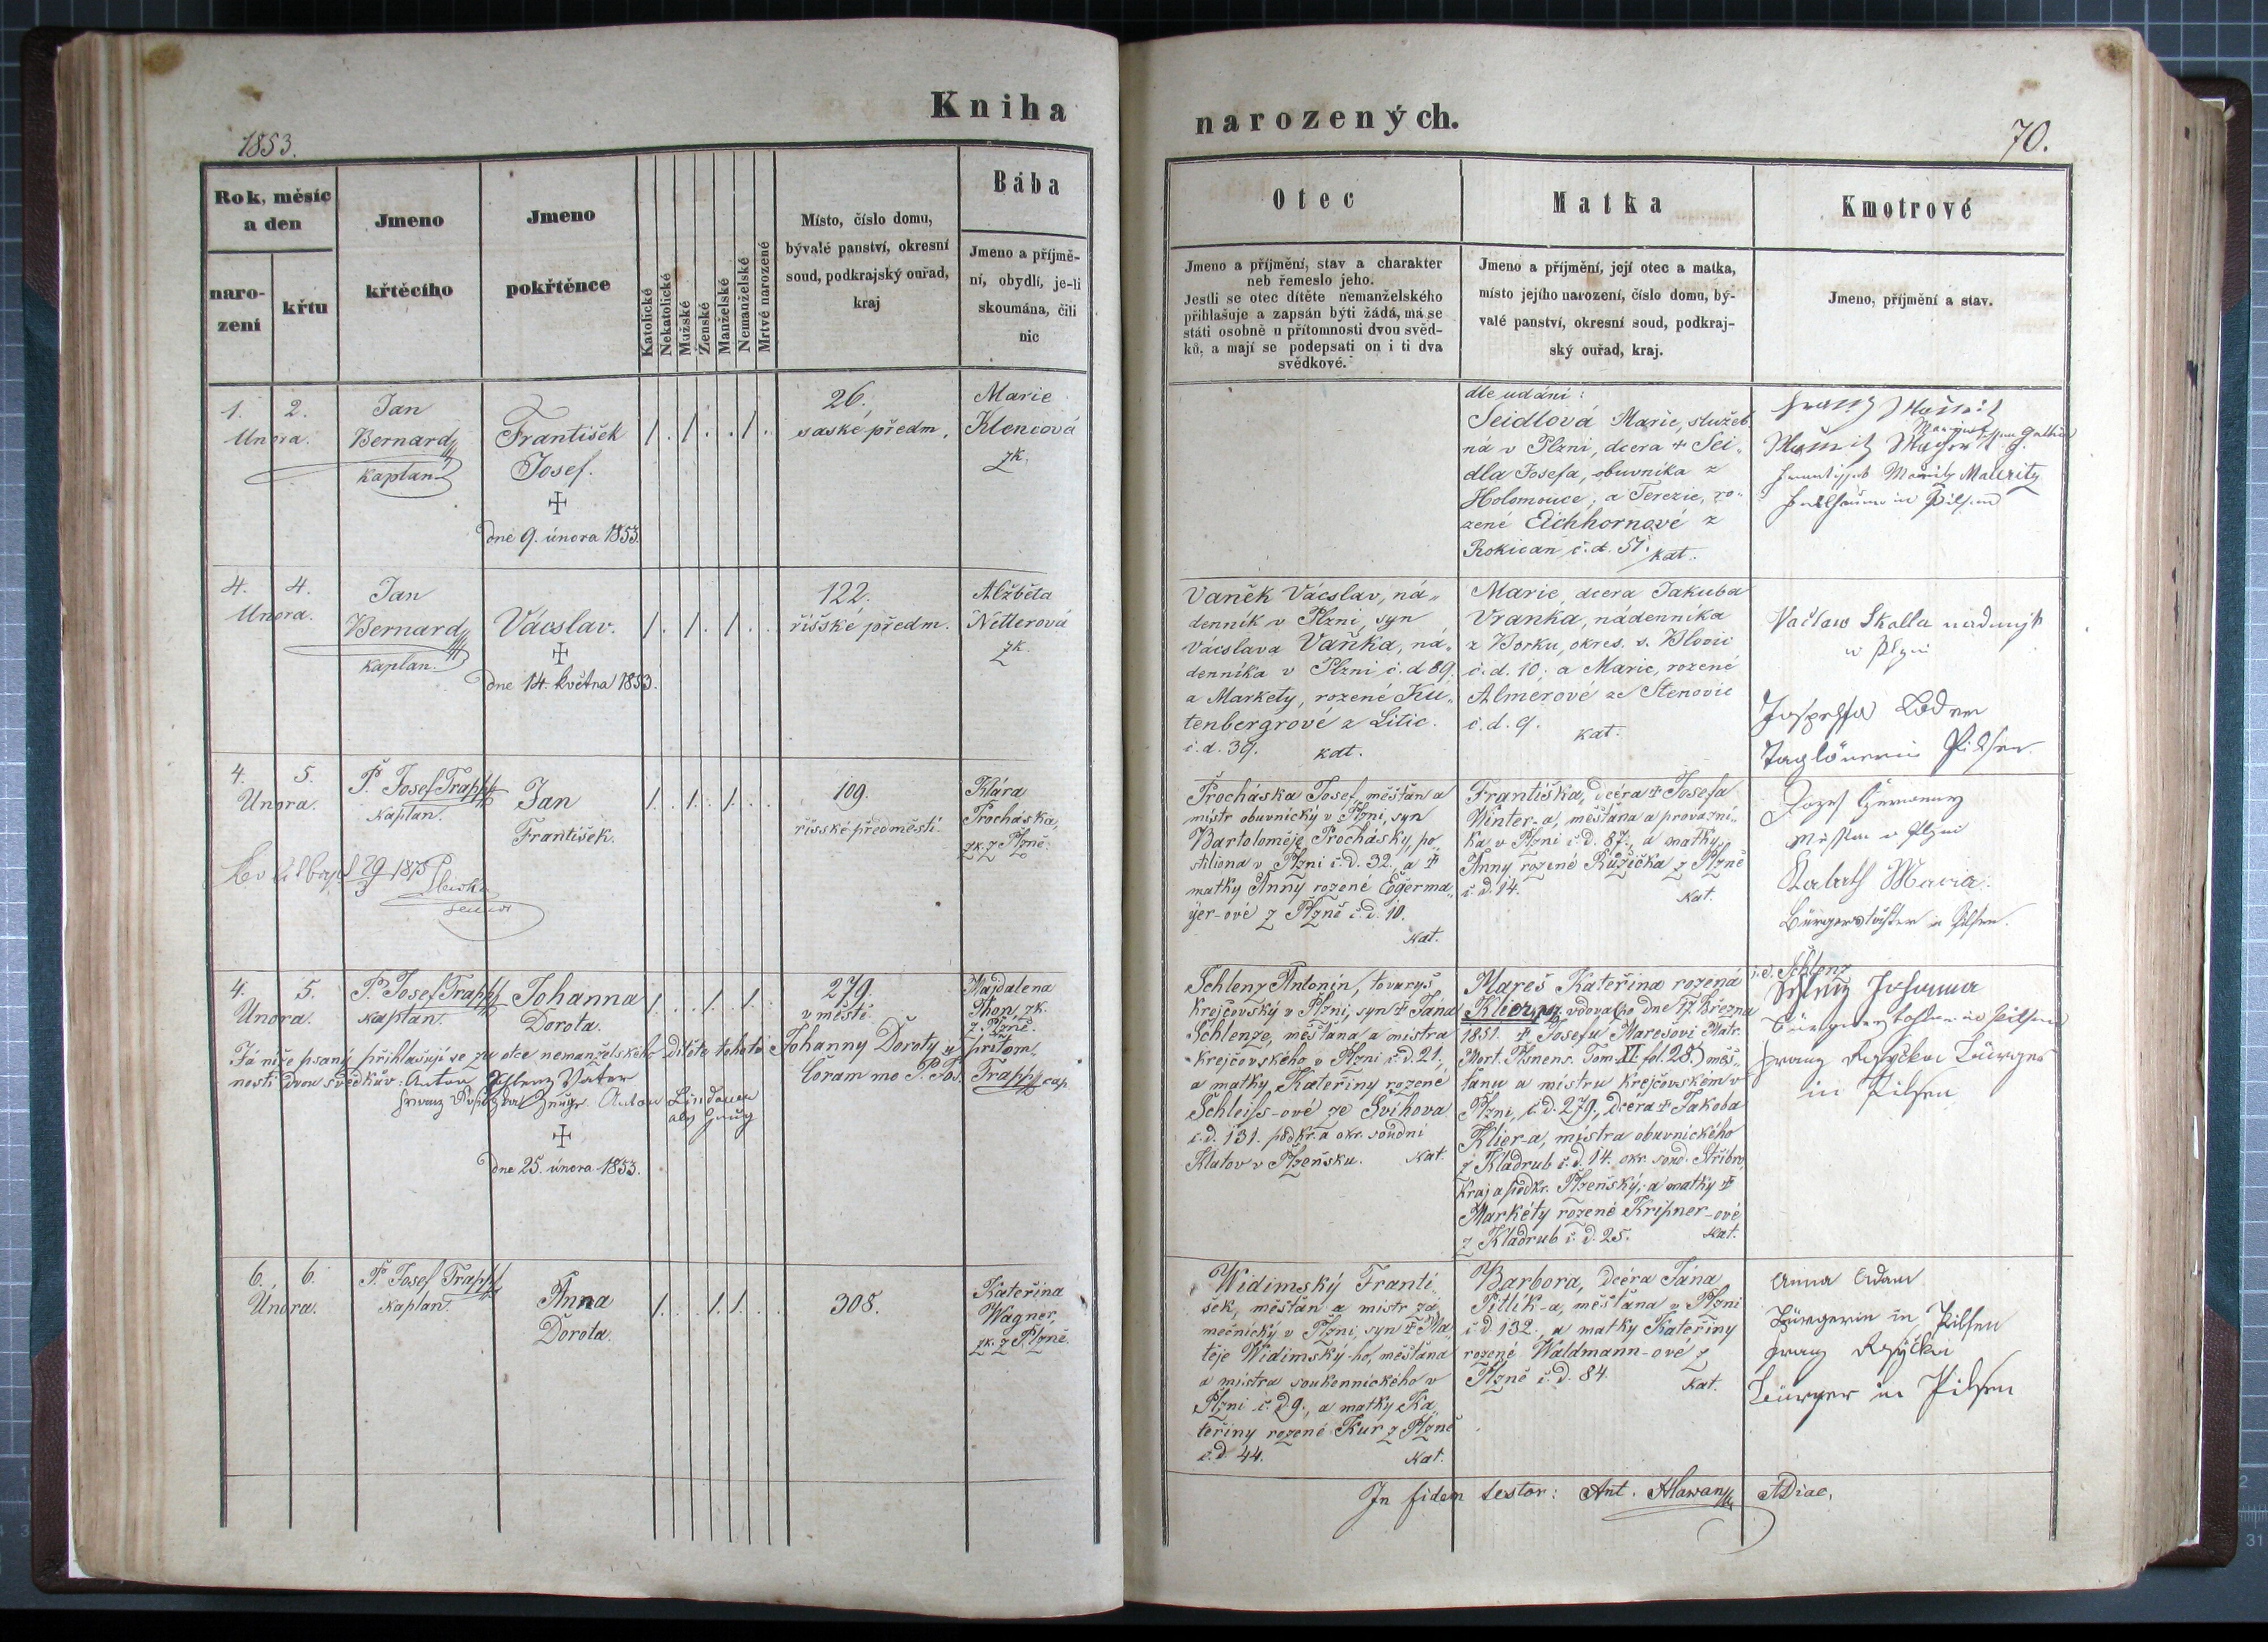 Kniha
1853.
Rok, měsíc
a den
naro-
zení
křtu
Jmeno
křtěcího
Jmeno
pokřtěnce
Katolické
Nekatolické
Mužské
Ženské
Manželské
Nemanželské
Mrtvé narozené
Místo, číslo domu,
bývalé panství, okresní
soud, podkrajský ouřad,
kraj
Bába
Jmeno a příjmě-
ní, obydlí, je-li
skoumána, čili
nic
1. 2.
Unora.
Jan
Bernard
kaplan
František
Josef.
dne 9. února 1853.
1. 1. . 1.
26.
saské předm.
Marie
Klencová
zk.
4. 4.
Unora.
Jan
Bernard
kaplan.
Vácslav.
dne 14. května 1853.
1. 1. 1. .
122.
říšské předm.
Alžběta
Netterová
zk.
4. 5.
Unora.
P. Josef Trapp
Kaplan.
Jan
František.
29 1875
1. 1. 1. .
109.
říšské předměstí.
Klára
Procháska,
zk. z Plzně.
4. 5.
Unora.
P. Josef Trapp
Kaplan.
Johanna
Dorota.
1. . 1. 1.
279.
v městě.
Majdalena
Thon, zk.
z Plzně.
Já níže psaný přihlašuji se za otce nemanželského dítěte tohoto Johanny Doroty u přítom-
nosti dvou svědkův: Anton Schlenz Vater Coram me P. Jos. Trapp cap
Anton Lindauer
als Zeug
dne 25. února 1853.
6. 6.
Unora.
P. Josef Trapp
Kaplan.
Anna
Dorota.
1. . 1. 1. .
308.
Kateřina
Wagner,
zk. z Plzně.
narozených.
70.
Otec
Jmeno a příjmění, stav a charakter
neb řemeslo jeho.
Jestli se otec dítěte nemanželského
přihlašuje a zapsán býti žádá, má se
státi osobně u přítomnosti dvou svěd-
ků, a mají se podepsati on i ti dva
svědkové.
Matka
Jmeno a příjmění, její otec a matka,
místo jejího narození, číslo domu, bý-
valé panství, okresní soud, podkraj-
ský ouřad, kraj.
Kmotrové
Jmeno, příjmění a stav.
dle udání:
Seidlová Marie, služeb-
ná v Plzni, dcera + Sei-
dla Josefa, obuvníka z
Holomouce, a Terezie, ro-
zené Eichhornové z
Rokican č. d. 51. kat.
Mauritz
in Pilsen
Vaněk Vácslav, ná-
denník v Plzni, syn
Vácslava Vaňka, ná-
denníka v Plzni č. d. 89.
a Markety, rozené Ku-
tenbergrové z Litic.
č. d. 39. kat.
Marie, dcera Jakuba
Vranka, nádenníka
z Borku, okres. s. Blovic
č. d. 10; a Marie, rozené
Almerové ze Stenovic
č. d. 9. kat.
Václaw Skalla
w Plzni
Taglönerin Pilsen.
Procháska Josef, měšťan a
mistr obuvnický v Plzni, syn
Bartoloměje Prochásky, po-
stiliona v Plzni č. d. 32. a +
matky Anny rozené Egerma-
yer-ové z Plzně č. d. 10.
kat.
Františka, dcéra + Josefa
Winter-a, měšťana a provazní-
ka v Plzni č. d. 87., a matky
Anny rozené Růžička z Plzně
č. d. 14. Kat.
Maria
Bürgerstochter in Pilsen.
Schlenz Antonín, tovaryš
krejčovský v Plzni, syn + Jana
Schlenze, měšťana a mistra
krejčovského v Plzni č. d. 21.,
a matky Kateřiny rozené
Schleiss-ové ze Švihova
č. d. 131. podkr. a okr. soudní
Klatov v Plzeňsku. Kat.
Mareš Kateřina rozená
Klier, vdova (po dne 17. března
1851. + Josefu Marešovi Matr.
Mort. Plsnens. Tom. VI. fol. 28.) měš-
ťanu a mistru krejčovském v
Plzni, č. d. 279., dcéra + Jakoba
Klier-a, mistra obuvnického
z Kladrub č. d. 14. okr. soud. Stříbro,
kraj a podkr. Plzeňský, a matky +
Markéty rozené Kripner-ové
z Kladrub č. d. 25. Kat.
Schlenz
Schlenz Johanna
Bürgerstochter in Pilsen
Franz Bürger
in Pilsen
Widimský Franti-
šek, měšťan a mistr zá-
mečnický v Plzni, syn + Ma-
těje Widimský-ho, měšťana
a mistra soukennického v
Plzni č. d. 9., a matky Ka-
teřiny rozené Kur z Plzně
č. d. 44. Kat.
Barbora, dcéra Jána
Pitlik-a, měšťana v Plzni
č. d. 132., a matky Kateřiny
rozené Waldmann-ové z
Plzně č. d. 84. Kat.
Anna Adam
Bürgerin in Pilsen
Franz
Bürger in Pilsen
In fidem testor: Ant. Hlawan ADiac.